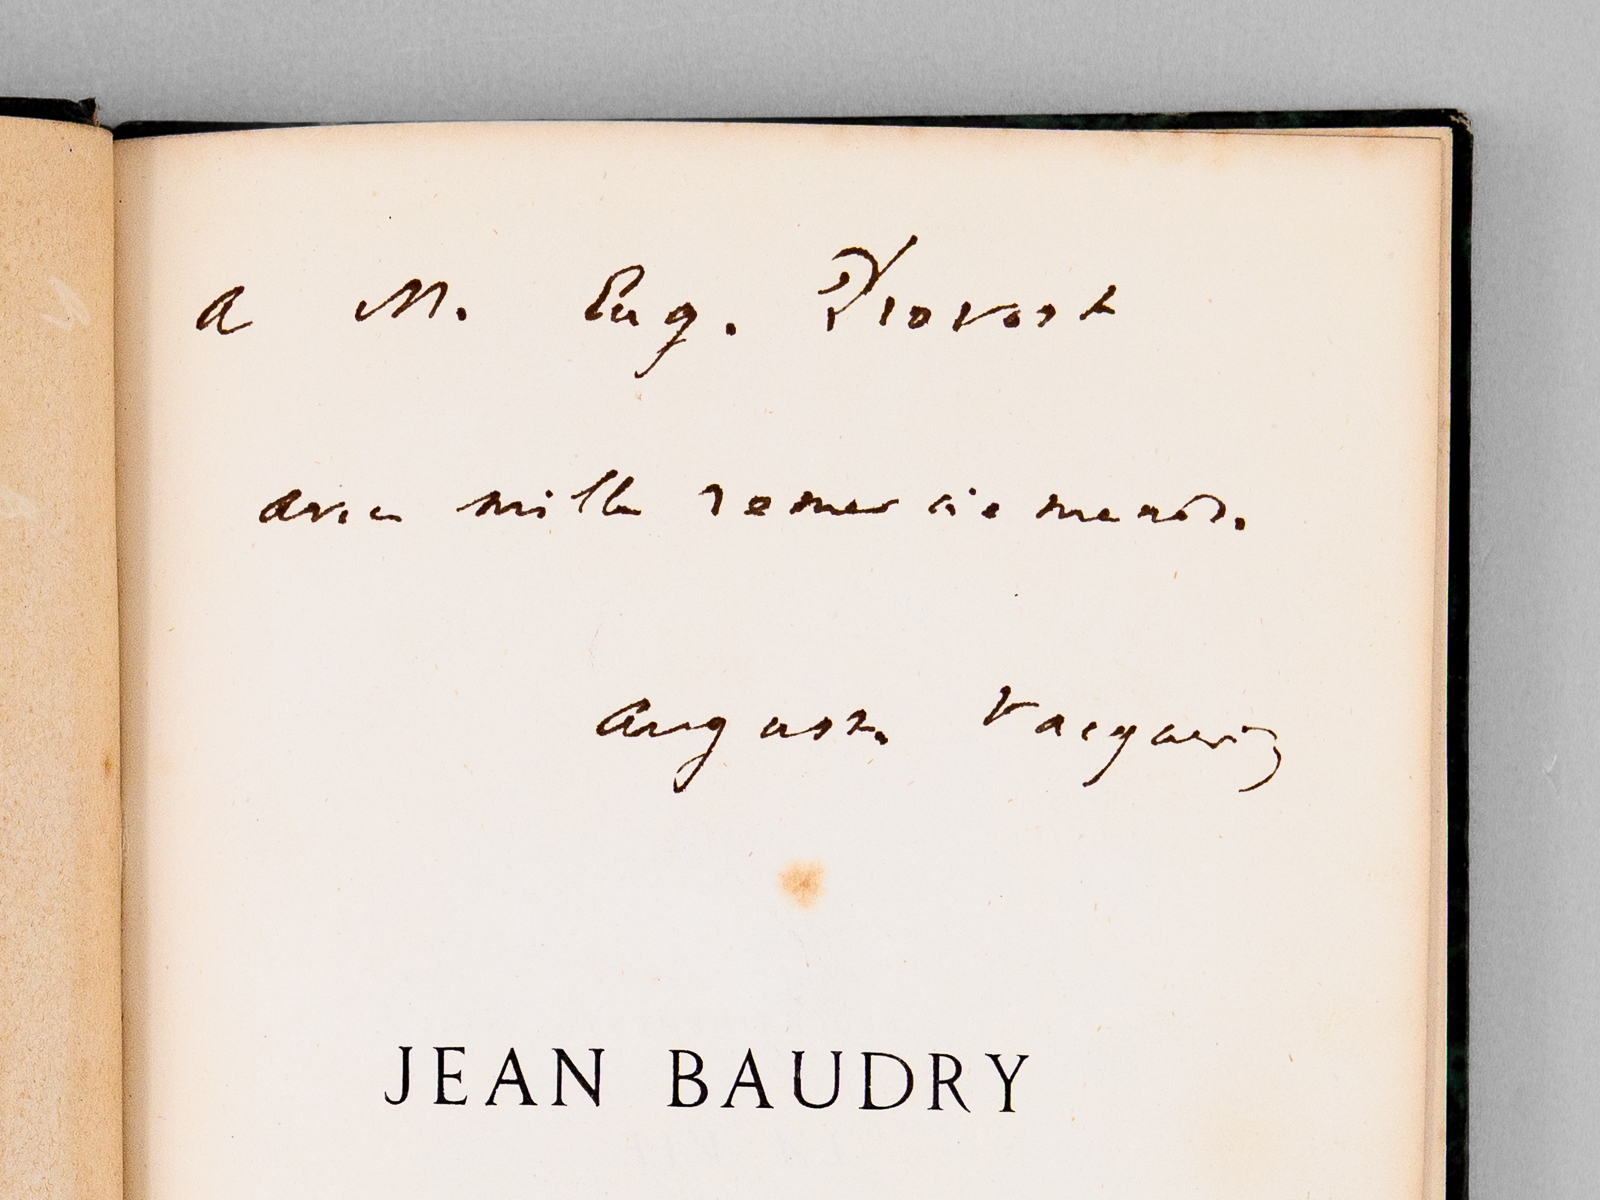 a M. Eug. Provost
avec mille remerciements.
Auguste Vacquerie
JEAN BAUDRY